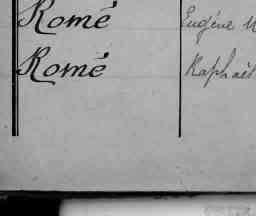 Romé Eugène
Romé Raphaël